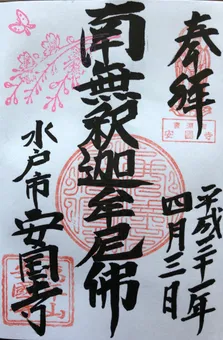 奉拝
平成三十一年
四月三日
南無釈迦牟尼佛
水戸市 安国寺